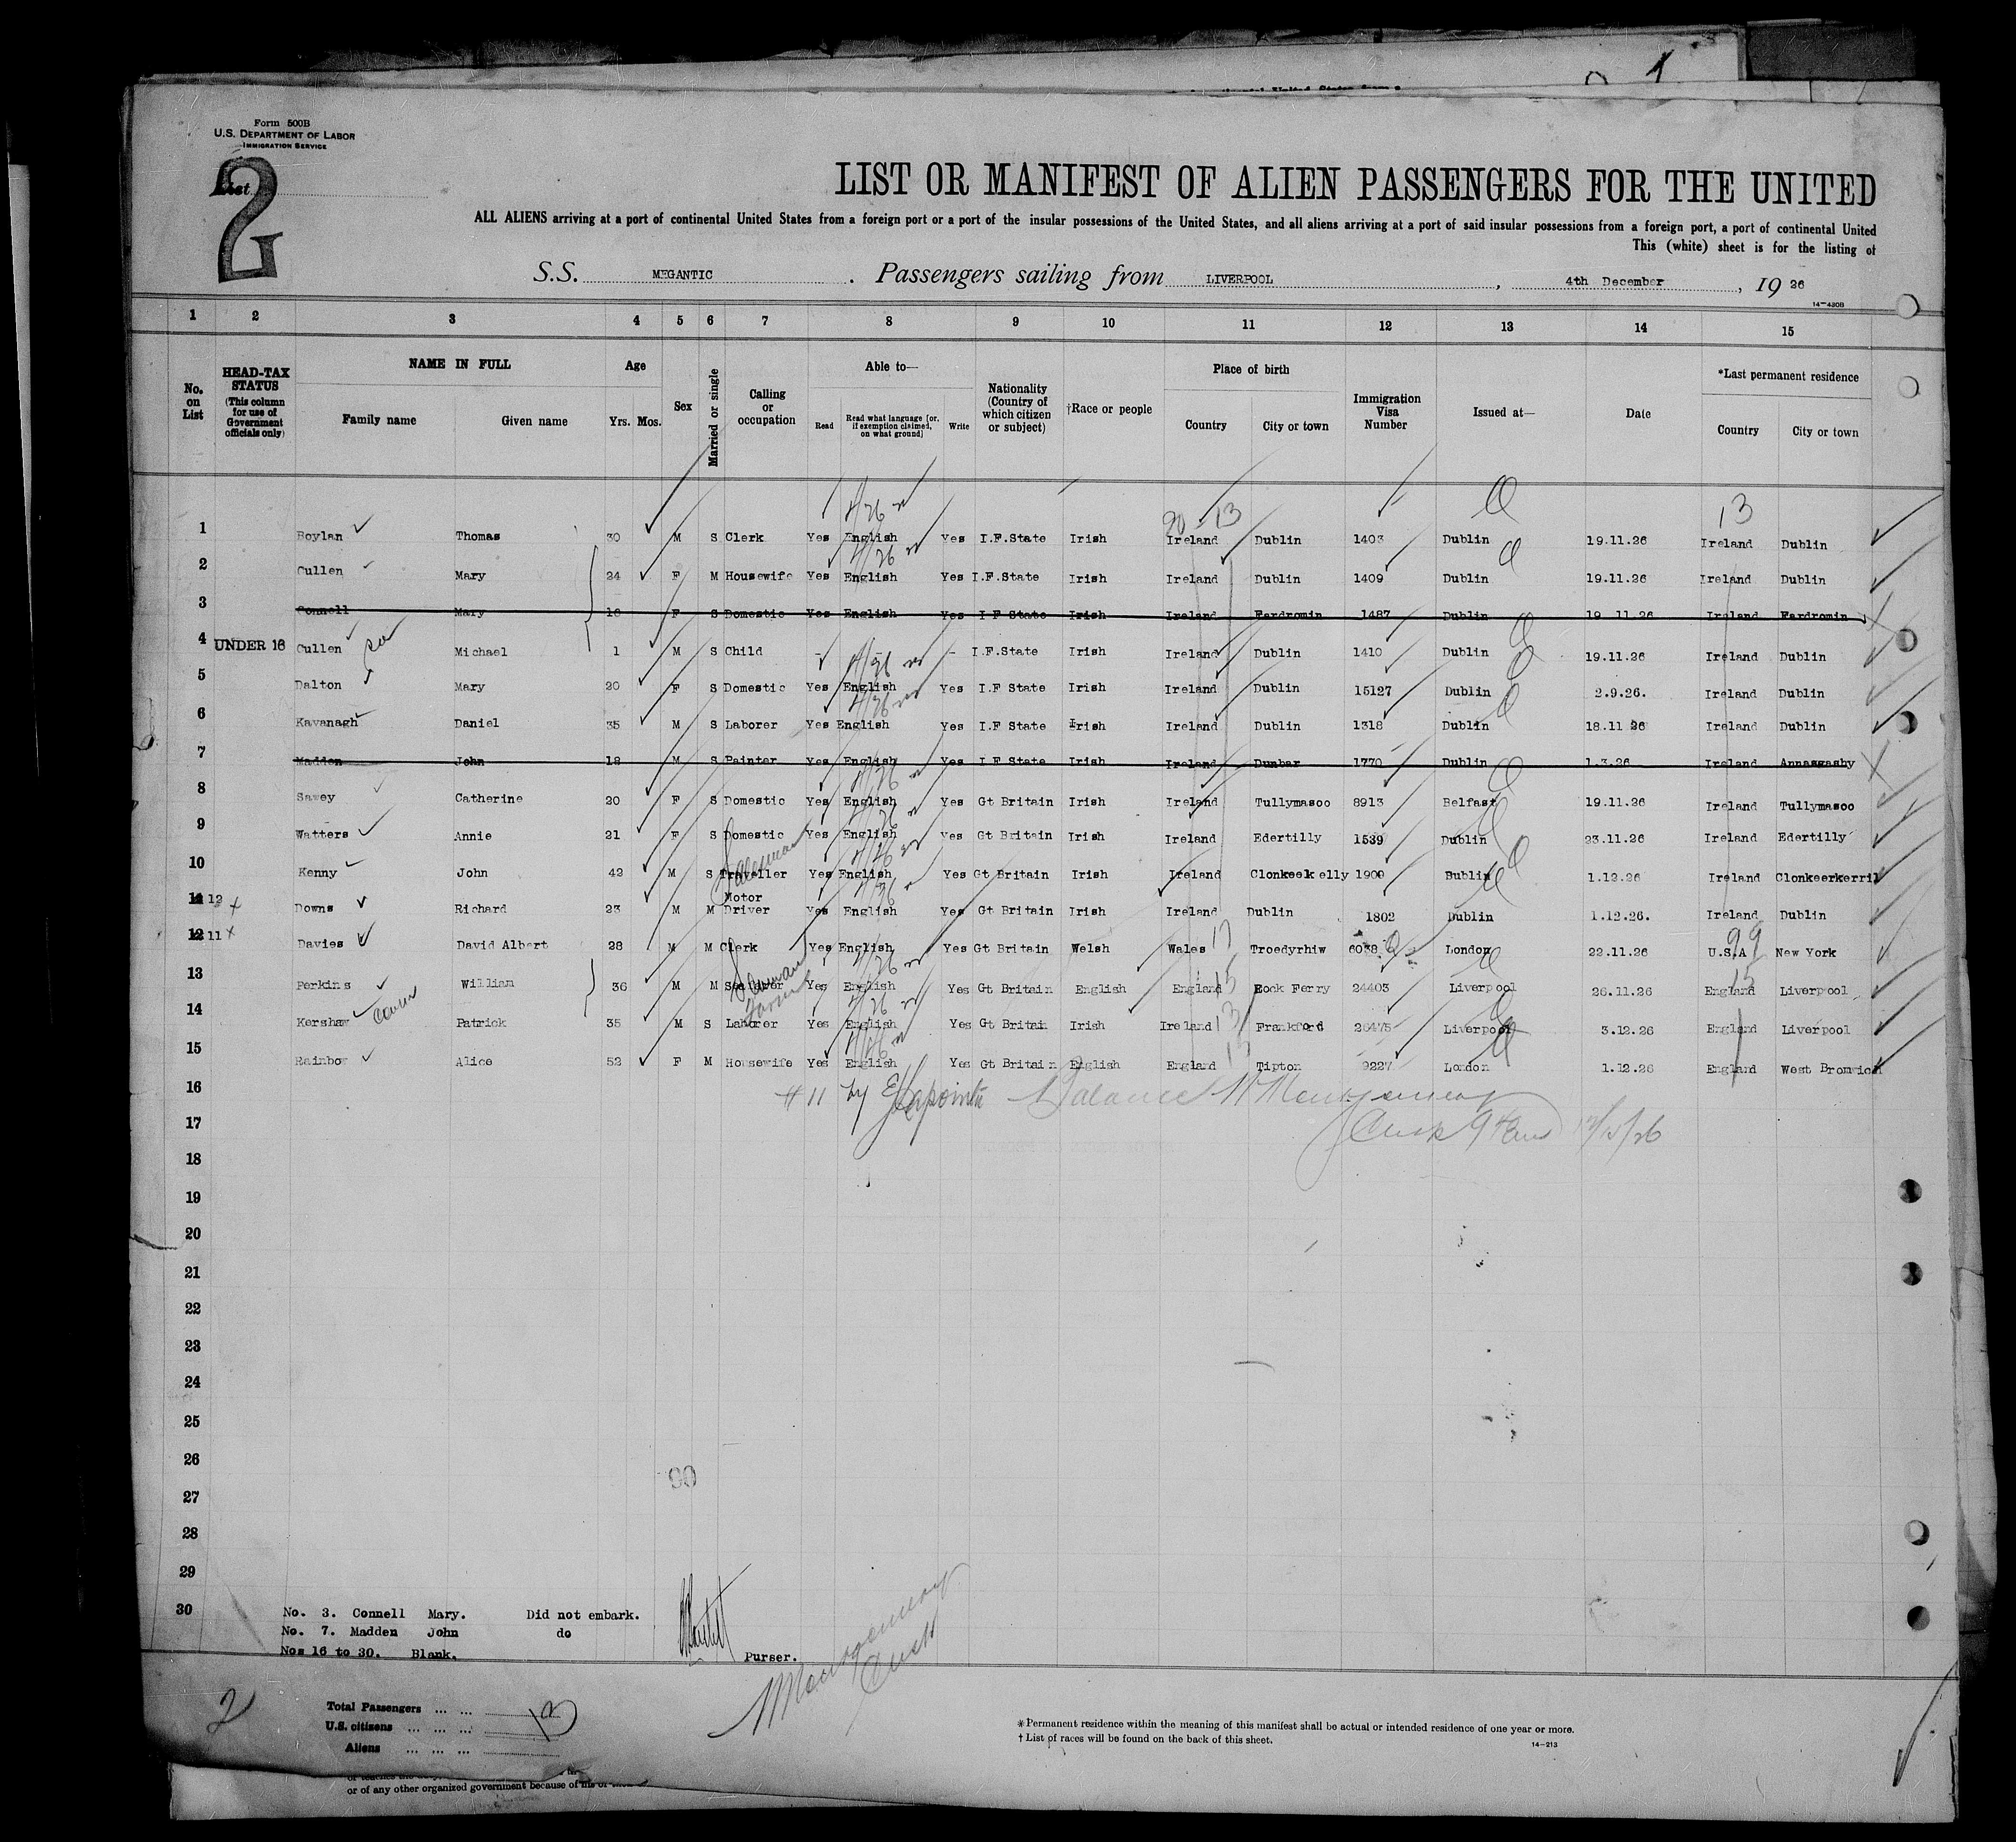 1
Form 500B
U.S. DEPARTMENT OF LABOR
IMMIGRATION SERVICE
List
2
LIST OR MANIFEST OF ALIEN PASSENGERS FOR THE UNITED
ALL ALIENS arriving at a port of continental United States from a foreign port or a port of the insular possessions of the United States, and all aliens arriving at a port of said insular possessions from a foreign port, a port of continental United
This (white) sheet is for the listing of
S.S. MEGANTIC. Passengers sailing from LIVERPOOL, 4th December, 19 26
14-420B
1 2 3 4 5 6 7 8 9 10 11 12 13 14 15
No. on List
HEAD-TAX STATUS (This column for use of Government officials only)
NAME IN FULL Family name Given name
Age Yrs. Mos.
Sex
Married or single
Calling or occupation
Able to— Read Read what language [or, if exemption claimed, on what ground] Write
Nationality (Country of which citizen or subject)
†Race or people
Place of birth Country City or town
Immigration Visa Number
Issued at—
Date
*Last permanent residence Country City or town
20 - 13 13
1 Boylan Thomas 30 M S Clerk Yes English Yes I.F.State Irish Ireland Dublin 1403 Dublin 19.11.26 Ireland Dublin
2 Cullen Mary 24 F M Housewife Yes English Yes I.F.State Irish Ireland Dublin 1409 Dublin 19.11.26 Ireland Dublin
3 Connell Mary 18 F S Domestic Yes English Yes I F State Irish Ireland Fardromin 1487 Dublin 19 11.26 Ireland Fardromin
4 UNDER 16 Cullen Michael 1 M S Child - - I.F.State Irish Ireland Dublin 1410 Dublin 19.11.26 Ireland Dublin
5 Dalton Mary 20 F S Domestic Yes English Yes I.F State Irish Ireland Dublin 15127 Dublin 2.9.26. Ireland Dublin
6 Kavanagh Daniel 35 M S Laborer Yes English Yes I.F State Irish Ireland Dublin 1318 Dublin 18.11 26 Ireland Dublin
7 Madden John 18 M S Painter Yes English Yes I F State Irish Ireland Dunbar 1770 Dublin 1.3.26 Ireland Annasgashy
8 Sawey Catherine 20 F S Domestic Yes English Yes Gt Britain Irish Ireland Tullymasoo 8913 Belfast 19.11.26 Ireland Tullymasoo
9 Watters Annie 21 F S Domestic Yes English Yes Gt Britain Irish Ireland Edertilly 1539 Dublin 23.11.26 Ireland Edertilly
Salesman
10 Kenny John 42 M S Traveller Yes English Yes Gt Britain Irish Ireland Clonkeekelly 1900 Dublin 1.12.26 Ireland Clonkeerkerril
11 12 Downs Richard 23 M M Motor Driver Yes English Yes Gt Britain Irish Ireland Dublin 1802 Dublin 1.12.26. Ireland Dublin
12 11 Davies David Albert 28 M M Clerk Yes English Yes Gt Britain Welsh Wales 17 Troedyrhiw 6038 London 22.11.26 U.S.A 99 New York
13 Perkins William 36 M M Yes English Yes Gt Britain English England 15 Rock Ferry 24403 Liverpool 26.11.26 England 15 Liverpool
14 Kershaw Patrick 35 M S Laborer Yes English Yes Gt Britain Irish Ireland 13 Frankford 26475 Liverpool 3.12.26 England Liverpool
15 Rainbow Alice 52 F M Housewife Yes English Yes Gt Britain English England 15 Tipton 9227 London 1.12.26 England West Bromwich
16 #11 by Lapointe Balance W Montgomery
17
18
19
20
21
22
23
24
25
26
27
28
29
30
90
No. 3. Connell Mary. Did not embark.
No. 7. Madden John do
Nos 16 to 30. Blank.
Purser.
Montgomery
2
Total Passengers ... ... 13
U.S. citizens ... ... ...
Aliens ... ... ...
* Permanent residence within the meaning of this manifest shall be actual or intended residence of one year or more.
† List of races will be found on the back of this sheet.
14-213
or of any other organized government because of his or